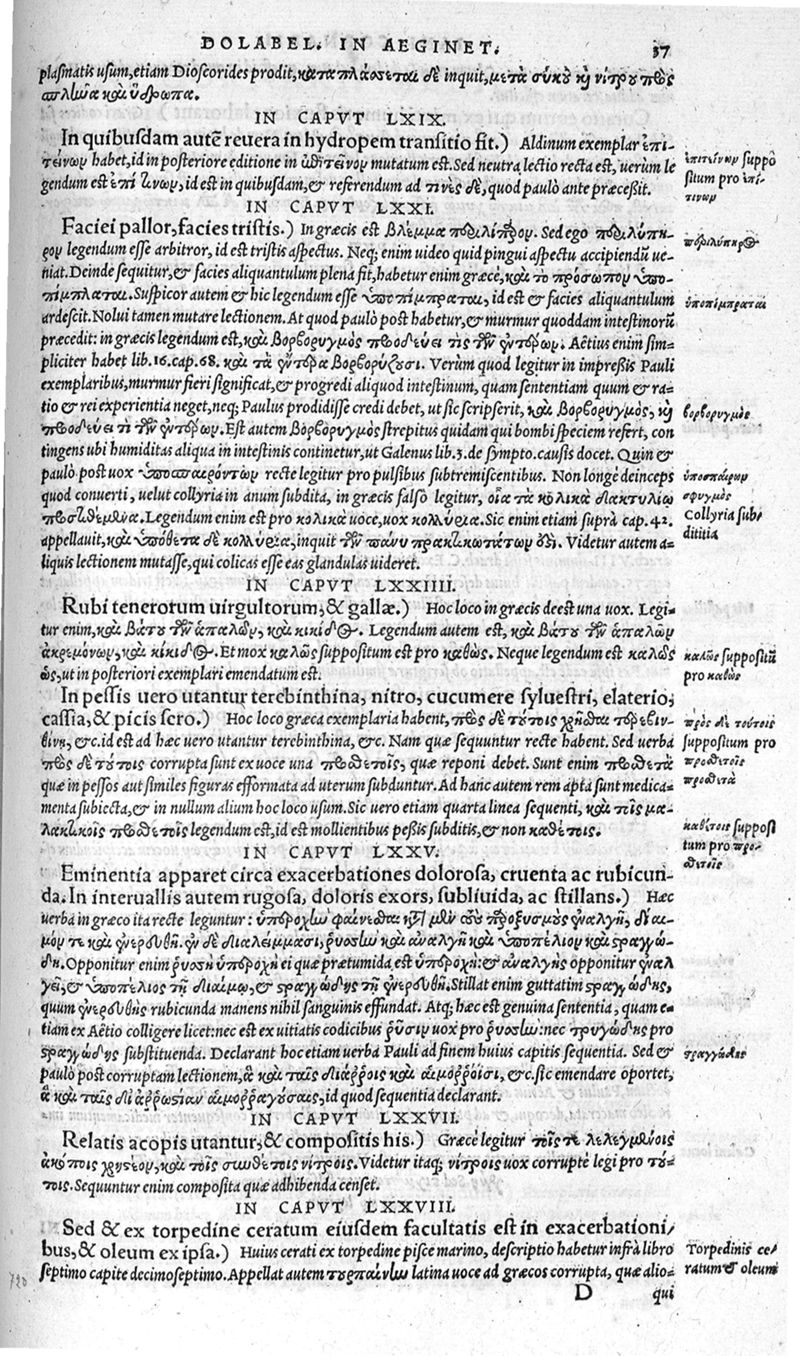 DOLABEL. IN AEGINET. 37
plasmatis usum, etiam Dioscorides prodit, καταπλάσσεται δὲ inquit, μετὰ σύκου καὶ νίτρου πρὸς
σπλῆνα καὶ ὕδρωπα.
IN CAPVT LXIX.
In quibusdam autē reuera in hydropem transitio fit.) Aldinum exemplar ἐπι-
τείνων habet, id in posteriore editione in mutatum est. Sed neutra lectio recta est, uerùm le
gendum est ἐπὶ τινων, id est in quibusdam, & referendum ad τινὲς δὲ, quod paulò ante præceßit.
ἐπιτείνων suppo
situm pro ἐπί-
τινων
IN CAPVT LXXI.
Faciei pallor, facies tristis.) In græcis est βλέμμα Sed ego
legendum esse arbitror, id est tristis aspectus. Neq; enim uideo quid pingui aspectu accipiendū ue-
niat. Deinde sequitur, & facies aliquantulum plena fit, habetur enim græcè, καὶ το πρόσωπον ὑπο-
πίμπλαται. Suspicor autem & hic legendum esse ὑποπίμπραται, id est & facies aliquantulum
ardescit. Nolui tamen mutare lectionem. At quod paulò post habetur, & murmur quoddam intestinorū
præcedit: in græcis legendum est, καὶ βορβορυγμὸς προοδεύει τις τῶν ἐντέρων. Aëtius enim sim-
pliciter habet lib. 16. cap. 68. καὶ τὰ ἔντερα βορβορύζουσι. Verùm quod legitur in impreßis Pauli
exemplaribus, murmur fieri significat, & progredi aliquod intestinum, quam sententiam quum & ra-
tio & rei experientia neget, neq; Paulus prodidisse credi debet, ut sic scripserit, καὶ βορβορυγμὸς, καὶ
προοδεύει τι τῶν ἐντέρων. Est autem βορβορυγμὸς strepitus quidam qui bombi speciem refert, con
tingens ubi humiditas aliqua in intestinis continetur, ut Galenus lib. 3. de sympto. causis docet. Quin &
paulò post uox ὑποσπαιρόντων recte legitur pro pulsibus subtremiscentibus. Non longè deinceps
quod conuerti, uelut collyria in anum subdita, in græcis falsò legitur, οἷα τὰ κολικὰ δακτυλίῳ
προστιθέμενα. Legendum enim est pro κολικὰ uoce, uox κολλύρια. Sic enim etiam suprà cap. 42.
appellauit, καὶ ὑπόθετα δὲ κολλύρια, inquit τῶν πάνυ πρακτικωτάτων ἐστί. Videtur autem a-
liquis lectionem mutasse, qui colicas esse eas glandulas uideret.
ὑποπίμπραται
βορβορυγμὸς
ὑποσπαίρων
σφυγμὸς
Collyria sub/
dititia
IN CAPVT LXXIIII.
Rubi tenerorum uirgultorum, & gallæ.) Hoc loco in græcis deest una uox. Legi-
tur enim, καὶ βάτου τῶν ἁπαλῶν, καὶ κικίδος. Legendum autem est, καὶ βάτου τῶν ἁπαλῶν
ἀκρεμόνων, καὶ κικίδος. Et mox καλῶς suppositum est pro καθὼς. Neque legendum est καλῶς
ὡς, ut in posteriori exemplari emendatum est.
καλῶς suppositū
pro καθὼς
In pessis uero utantur terebinthina, nitro, cucumere syluestri, elaterio,
cassia, & picis sero.) Hoc loco græca exemplaria habent, πρὸς δὲ τούτοις χρῆσθαι τερεβιν-
θίνῃ, &c. id est ad hæc uero utantur terebinthina, &c. Nam quæ sequuntur recte habent. Sed uerba
πρὸς δὲ τούτοις corrupta sunt ex uoce una προσθετοῖς, quæ reponi debet. Sunt enim προσθετὰ
quæ in pessos aut similes figuras efformata ad uterum subduntur. Ad hanc autem rem apta sunt medica-
menta subiecta, & in nullum alium hoc loco usum. Sic uero etiam quarta linea sequenti, καὶ τοῖς μα-
λακτικοῖς προσθετοῖς legendum est, id est mollientibus peßis subditis, & non καθέτοις.
πρὸς δὲ τούτοις
suppositum pro
προσθετοῖς
προσθετὰ
καθέτοις supposi
tum pro προσ-
θετοῖς
IN CAPVT LXXV.
Eminentia apparet circa exacerbationes dolorosa, cruenta ac rubicun-
da. In interuallis autem rugosa, doloris exors, subliuida, ac stillans.) Hæc
uerba in græco ita recte leguntur: ὑπεροχὴ φαίνεσθαι κατὰ μὲν τοὺς παροξυσμοὺς ἐναλγῆ, ἔναι-
μόν τε καὶ ἐνερευθῆ. ἐν δὲ διαλείμμασι, ῥυσὴν καὶ ἀναλγῆ καὶ ὑποπέλιον καὶ στραγγώ-
δη. Opponitur enim ῥυσὴ ὑπεροχὴ ei quæ prætumida est ὑπεροχὴ: & ἀναλγὴς opponitur ἐναλ
γεῖ, & ὑποπέλιος τῇ ἐναίμῳ, & στραγγώδης τῇ ἐνερευθῆ. Stillat enim guttatim στραγγώδης,
quum ἐνερευθὴς rubicunda manens nihil sanguinis effundat. Atq; hæc est genuina sententia, quam e-
tiam ex Aëtio colligere licet: nec est ex uitiatis codicibus ῥύσιν uox pro ῥυσὴν: nec τρυγώδης pro
στραγγώδης substituenda. Declarant hoc etiam uerba Pauli ad finem huius capitis sequentia. Sed &
paulò post corruptam lectionem, καὶ ταῖς διαῤῥοίαις καὶ αἱμοῤῥοΐσι, &c. sic emendare oportet,
καὶ ταῖς αἱμοῤῥαγούσαις, id quod sequentia declarant.
στραγγώδης
IN CAPVT LXXVII.
Relatis acopis utantur, & compositis his.) Græcè legitur τοῖς τε λελεγμένοις
ἀκόποις χρηστέον, καὶ τοῖς συνθέτοις νίτροις. Videtur itaq; νίτροις uox corruptè legi pro τού-
τοις. Sequuntur enim composita quæ adhibenda censet.
IN CAPVT LXXVIII.
Sed & ex torpedine ceratum eiusdem facultatis est in exacerbationi/
bus, & oleum ex ipsa.) Huius cerati ex torpedine pisce marino, descriptio habetur infrà libro
septimo capite decimoseptimo. Appellat autem τουρπαίνην latina uoce ad græcos corrupta, quæ alio-
Torpedinis ce/
ratum & oleum
D qui